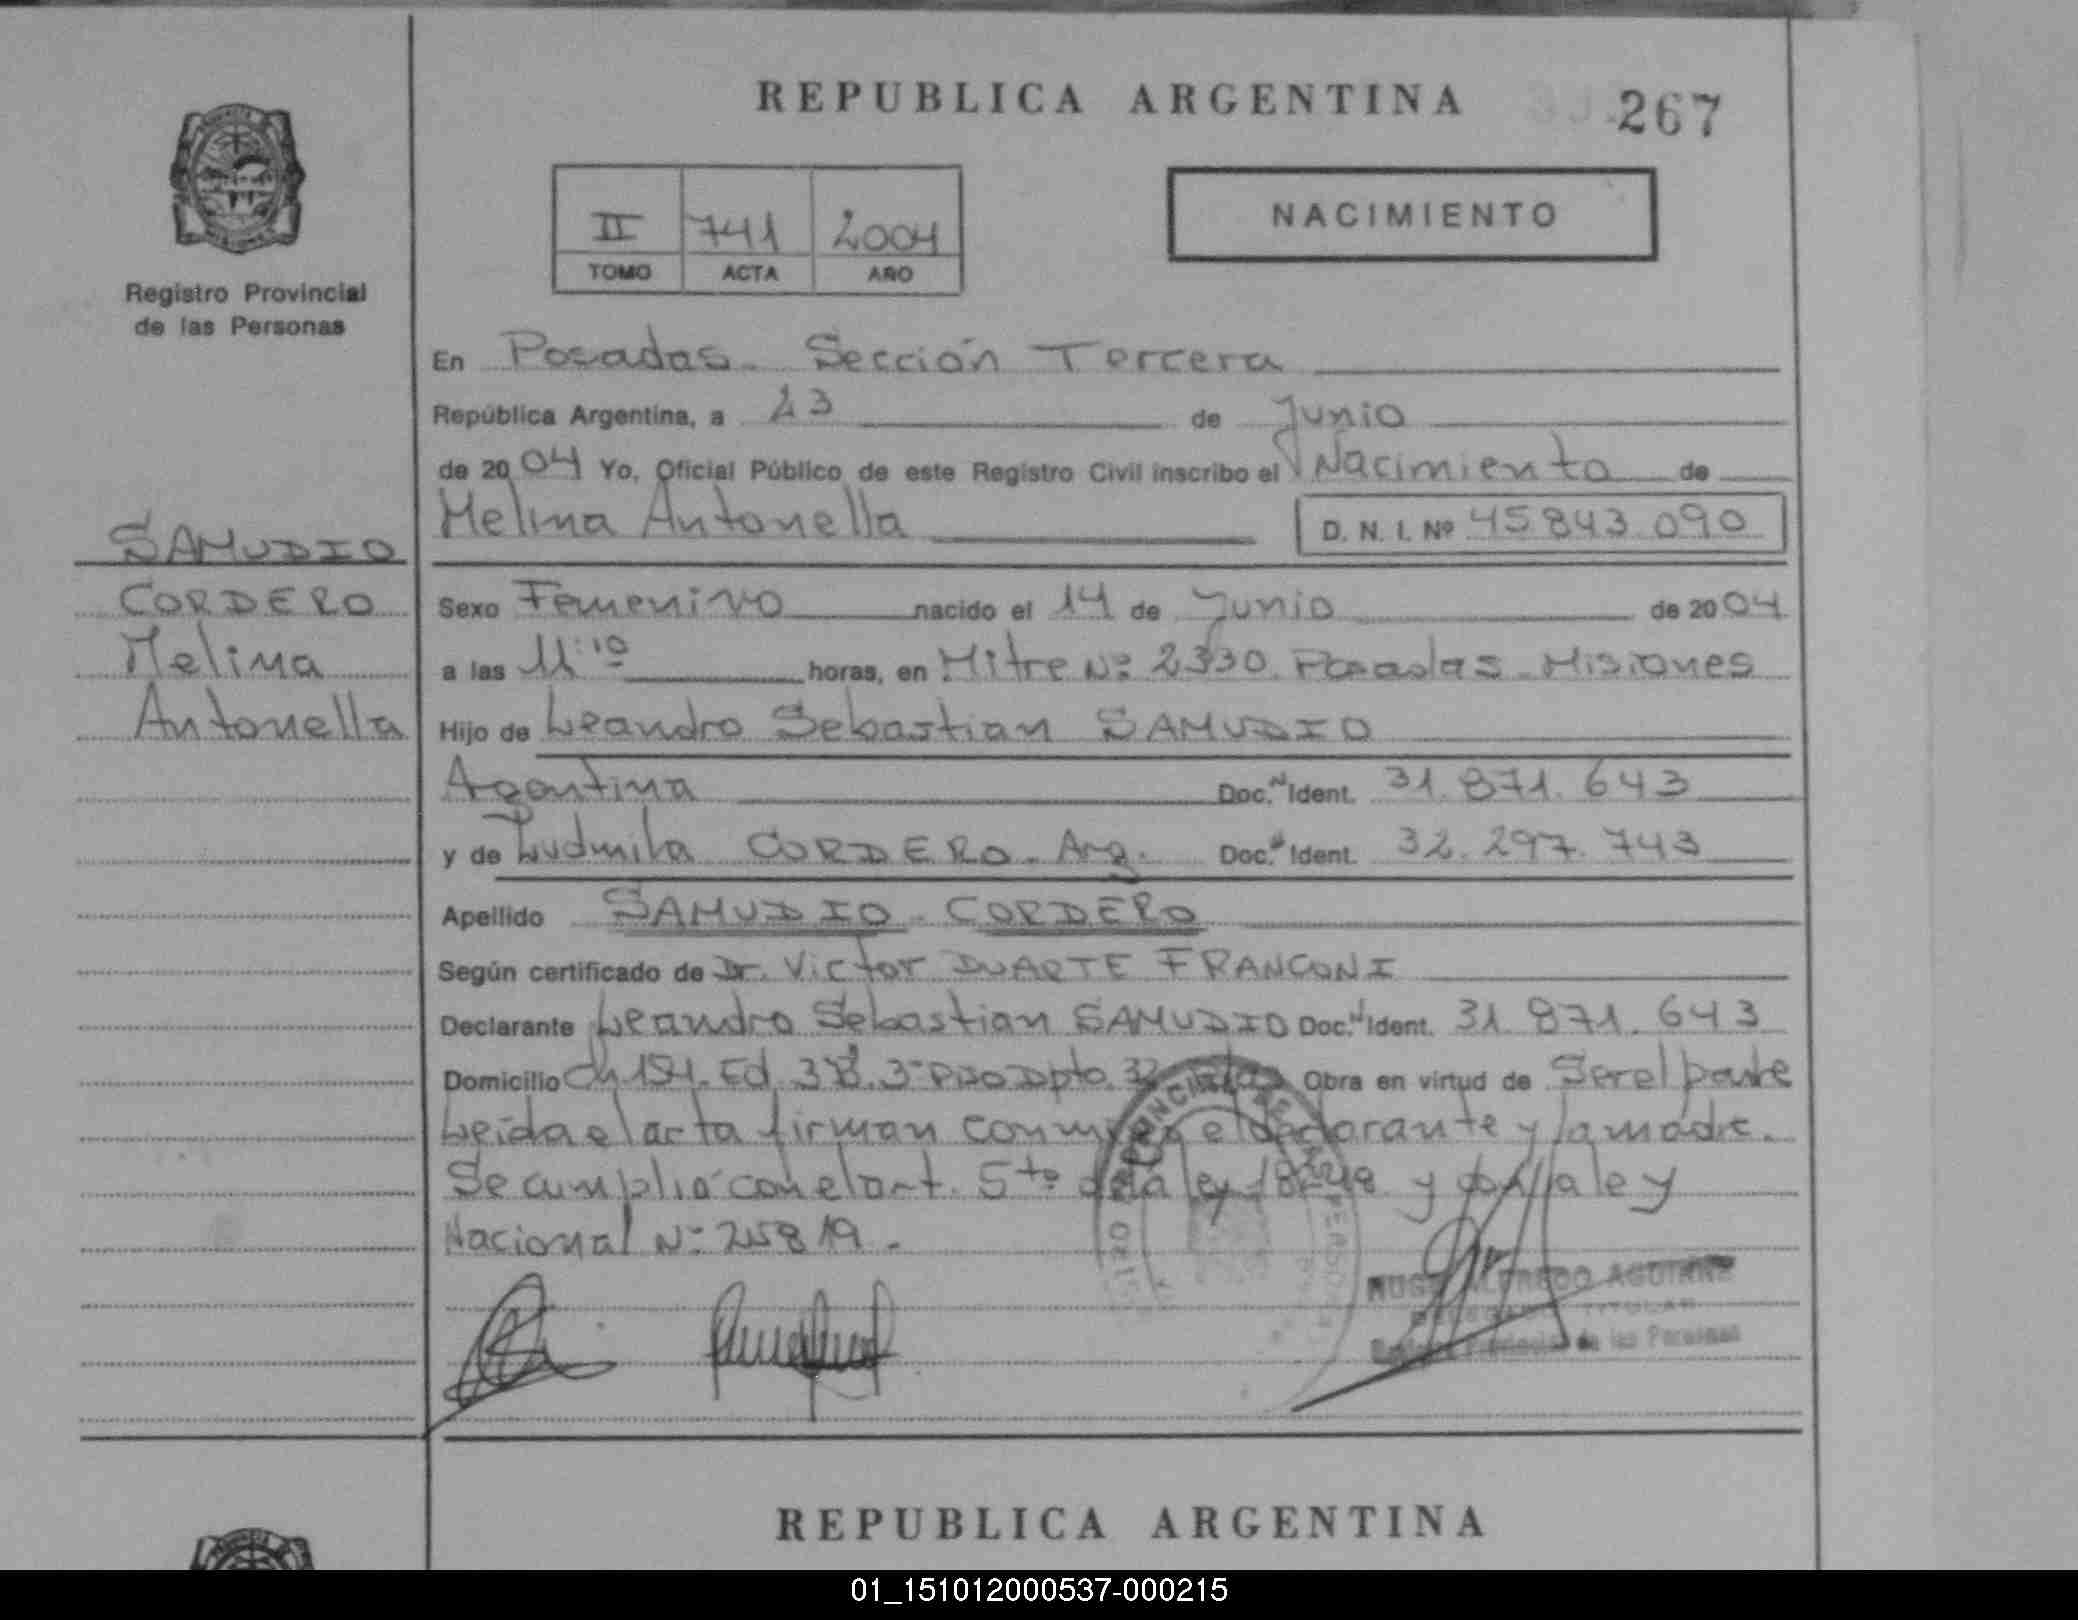 REPUBLICA ARGENTINA
267
II 741 2004
TOMO ACTA AÑO
NACIMIENTO
Registro Provincial
de las Personas
En Posadas. Sección Tercera
República Argentina, a 23 de Junio
de 2004 Yo, Oficial Público de este Registro Civil inscribo el Nacimiento de
Melina Antonella D. N. I. Nº 45843.090
SAMUDIO
CORDERO
Melina
Antonella
Sexo Femenino nacido el 14 de Junio de 2004
a las 11:10 horas, en Mitre Nº 2330. Posadas - Misiones
Hijo de Leandro Sebastian SAMUDIO
Agentina Doc. Ident. 31.871.643
y de Ludmila CORDERO. Arg. Doc. Ident. 32.297.743
Apellido SAMUDIO - CORDERO
Según certificado de Dr. Victor DUARTE FRANCONI
Declarante Leandro Sebastian SAMUDIO Doc. Ident. 31.871.643
Domicilio Ch 154. Ed. 38. 3º Piso Dpto. Obra en virtud de Ser el padre
Leida el acta firman conmigo el declarante y la madre.
Se cumplió con el art. 5to de la ley 18248 y con la ley
Nacional Nº 25819.
HUGO ALFREDO AGUIRRE
DELEGADO TITULAR
Registro Provincial de las Personas
REPUBLICA ARGENTINA
01_151012000537-000215